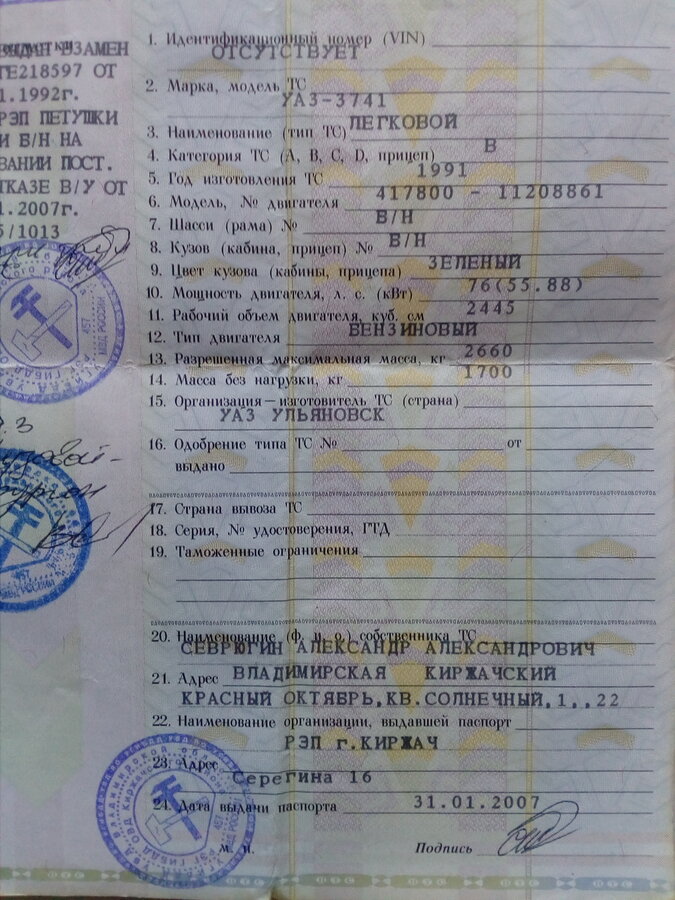 ВЗАМЕН
218597 ОТ
1.1992г.
РЭП ПЕТУШКИ
И Б/Н НА
ВАНИИ ПОСТ.
ТКАЗЕ В/У ОТ
1.2007г.
5/1013
1. Идентификационный номер (VIN)
ОТСУТСТВУЕТ
2. Марка, модель ТС
УАЗ-3741
3. Наименование (тип ТС) ЛЕГКОВОЙ
4. Категория ТС (А, В, С, D, прицеп) В
5. Год изготовления ТС 1991
6. Модель, № двигателя 417800 - 11208861
7. Шасси (рама) № Б/Н
8. Кузов (кабина, прицеп) № Б/Н
9. Цвет кузова (кабины, прицепа) ЗЕЛЕНЫЙ
10. Мощность двигателя, л. с. (кВт) 76(55.88)
11. Рабочий объем двигателя, куб. см 2445
12. Тип двигателя БЕНЗИНОВЫЙ
13. Разрешенная максимальная масса, кг 2660
14. Масса без нагрузки, кг 1700
15. Организация—изготовитель ТС (страна)
УАЗ УЛЬЯНОВСК
16. Одобрение типа ТС № от
выдано
17. Страна вывоза ТС
18. Серия, № удостоверения, ГТД
19. Таможенные ограничения
20. Наименование (ф. и. о.) собственника ТС
СЕВРЮГИН АЛЕКСАНДР АЛЕКСАНДРОВИЧ
21. Адрес ВЛАДИМИРСКАЯ КИРЖАЧСКИЙ
КРАСНЫЙ ОКТЯБРЬ,КВ.СОЛНЕЧНЫЙ,1,,22
22. Наименование организации, выдавшей паспорт
РЭП г.КИРЖАЧ
23. Адрес
Серегина 16
24. Дата выдачи паспорта 31.01.2007
М. П.
Подпись